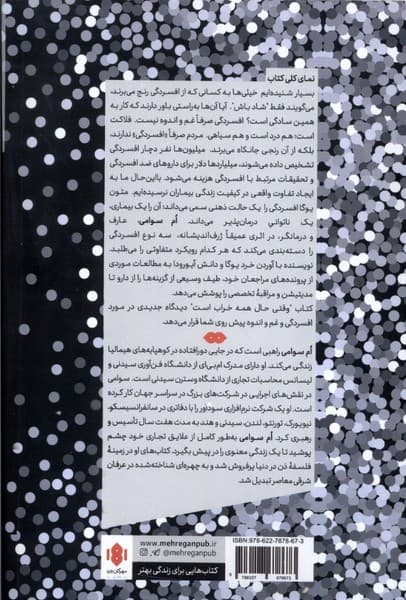 نمای کلی کتاب
بسیار شنیده‌ایم خیلی‌ها به کسانی که از افسردگی رنج می‌برند،
می‌گویند فقط "شاد باش". آیا آن‌ها به‌راستی باور دارند که کار به
همین سادگی است؟ افسردگی صرفاً غم و اندوه نیست. فلاکت
است؛ هم درد است و هم سیاهی. مردم صرفاً «افسردگی» ندارند،
بلکه از آن رنجی جانکاه می‌برند. میلیون‌ها نفر دچار افسردگی
تشخیص داده می‌شوند، میلیاردها دلار برای داروهای ضد افسردگی
و تحقیقات مرتبط با افسردگی هزینه می‌شود. بااین‌حال ما به
ایجاد تفاوت واقعی در کیفیت زندگی بیماران نرسیده‌ایم. متون
یوگا افسردگی را یک حالت ذهنی سمی می‌داند؛ آن را یک بیماری،
یک ناتوانی درمان‌پذیر می‌داند. اُم سوامی، عارف
و درمانگر، در اثری عمیقاً ژرف‌اندیشانه، سه نوع افسردگی
را دسته‌بندی می‌کند که هر کدام رویکرد متفاوتی را می‌طلبد.
نویسنده با آوردن خرد یوگا و دانش آیورودا به مطالعات موردی
از پرونده‌های مراجعان خود، طیف وسیعی از گزینه‌ها را از دارو تا
مدیتیشن و مراقبهٔ تخصصی را پوشش می‌دهد.
کتاب "وقتی حال همه خراب است" دیدگاه جدیدی در مورد
افسردگی و غم و اندوه پیش روی شما قرار می‌دهد.
اُم سوامی راهبی است که در جایی دورافتاده در کوهپایه‌های هیمالیا
زندگی می‌کند. او دارای مدرک ام‌بی‌ای از دانشگاه فن‌آوری سیدنی و
لیسانس محاسبات تجاری از دانشگاه وسترن سیدنی است. سوامی
در نقش‌های اجرایی در شرکت‌های بزرگ در سراسر جهان کار کرده
است. او یک شرکت نرم‌افزاری سودآور را با دفاتری در سانفرانسیسکو،
نیویورک، تورنتو، لندن، سیدنی و هند به مدت هفت سال تأسیس و
رهبری کرد. اُم سوامی به‌طور کامل از علایق تجاری خود چشم
پوشید تا یک زندگی معنوی را در پیش بگیرد. کتاب‌های او در زمینهٔ
فلسفهٔ تن در دنیا پرفروش شد و به چهره‌ای شناخته‌شده در عرفان
شرقی معاصر تبدیل شد.
www.mehreganpub.ir
@mehreganpub
کتاب‌هایی برای زندگی بهتر
ISBN: 978-622-7675-67-3
9 786227 675673